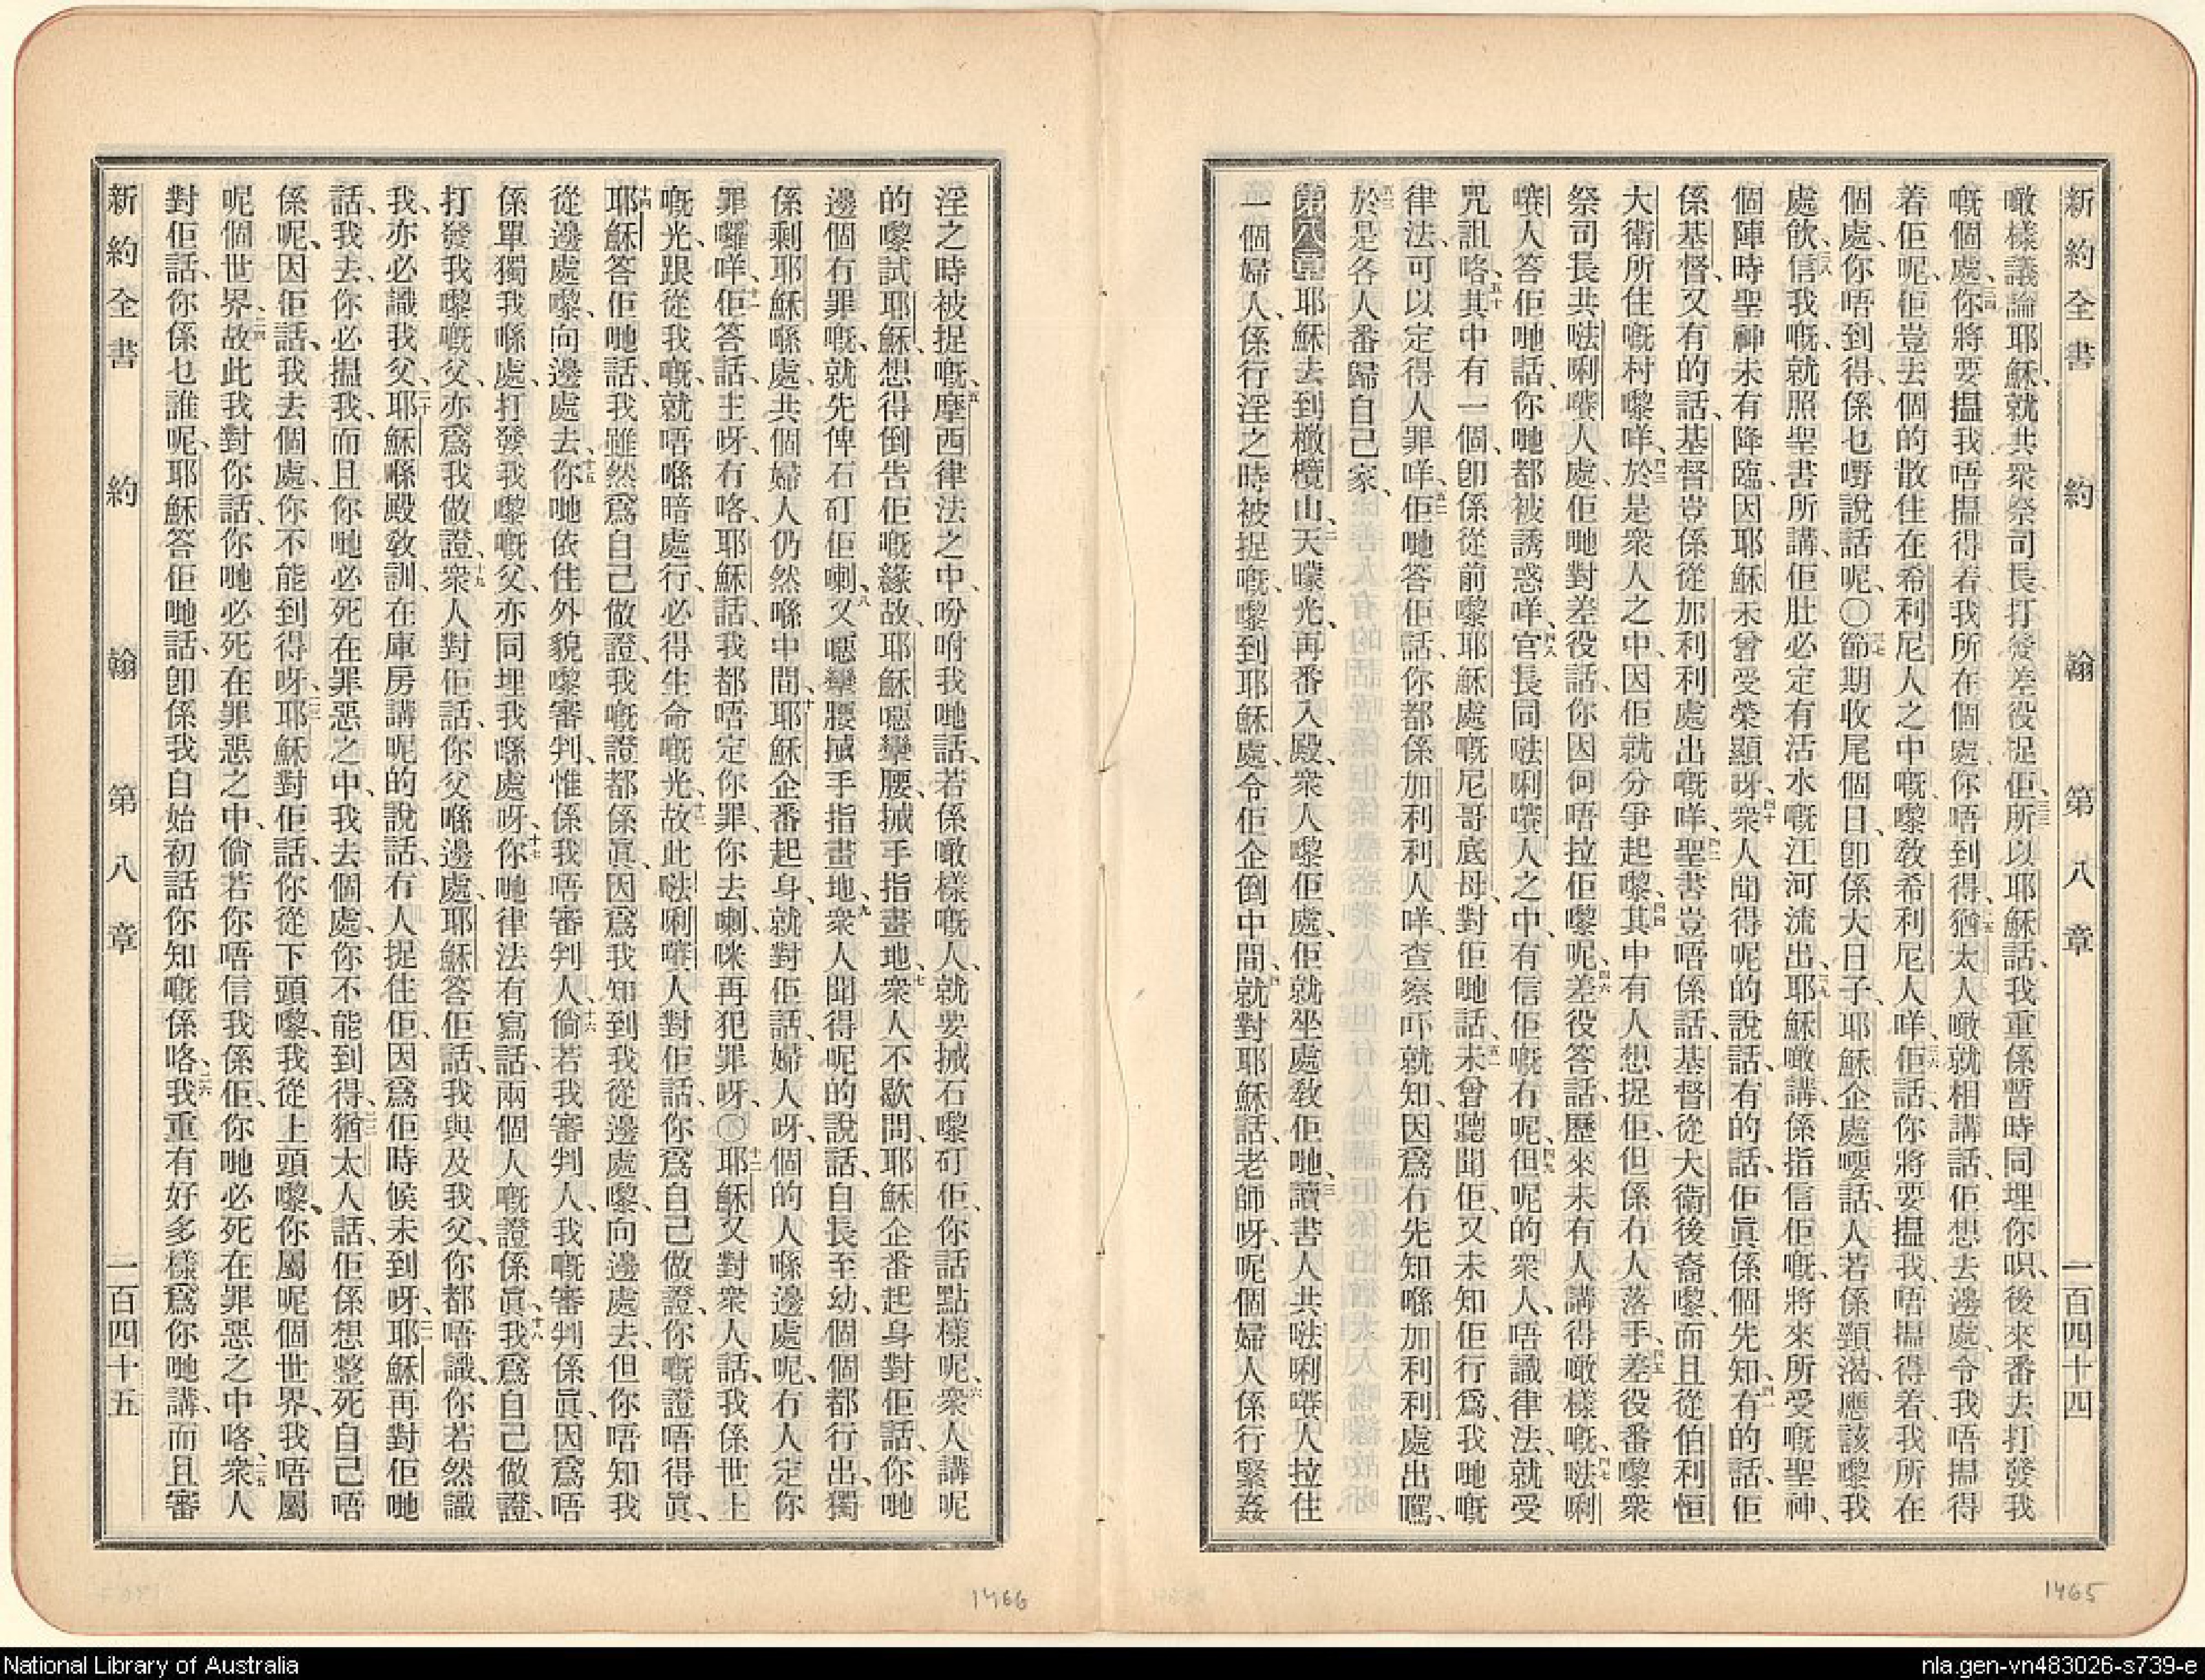 新約全書 約翰 第八章 一百四十四
噉樣議論耶穌、就共衆祭司長打發差役捉佢、三三所以耶穌話、我重係暫時同埋你哋、後來番去打發我
嘅個處、三四你將要揾我唔揾得着、我所在個處、你唔到得、三五猶太人噉就相講話、佢想去邊處、令我唔揾得
着佢呢、佢豈去個的散住在希利尼人之中嘅、嚟敎希利尼人咩、三六佢話、你將要揾我、唔揾得着、我所在
個處、你唔到得、係乜嘢說話呢、〇三七節期收尾個日、卽係大日子、耶穌企處嗌話、人若係頸渴、應該嚟我
處飲、三八信我嘅、就照聖書所講、佢肚必定有活水嘅江河流出、三九耶穌噉講、係指信佢嘅、將來所受嘅聖神、
個陣時聖神未有降臨、因耶穌未曾受榮顯呀、四十衆人聞得呢的說話、有的話、佢眞係個先知、四一有的話、佢
係基督、又有的話、基督豈係從加利利處出嘅咩、四二聖書豈唔係話、基督從大衛後裔嚟、而且從伯利恒
大衛所住嘅村嚟咩、四三於是衆人之中、因佢就分爭起嚟、四四其中有人想捉佢、但係冇人落手、四五差役番嚟衆
祭司長共𠵽唎㘔人處、佢哋對差役話、你因何唔拉佢嚟呢、四六差役答話、歷來未有人講得噉樣嘅、四七𠵽唎
㘔人答佢哋話、你哋都被誘惑咩、四八官長同𠵽唎㘔人之中、有信佢嘅冇呢、四九但呢的衆人、唔識律法、就受
咒詛咯、五十其中有一個、卽係從前嚟耶穌處嘅尼哥底母、對佢哋話、五一未曾聽聞佢、又未知佢行爲、我哋嘅
律法、可以定得人罪咩、五二佢哋答佢話、你都係加利利人咩、查察吓就知、因爲冇先知喺加利利處出嘅、
五三於是各人番歸自己家、
第八章耶穌去到橄欖山、二天曚光、再番入殿、衆人嚟佢處、佢就坐處敎佢哋、三讀書人共𠵽唎㘔人拉住
一個婦人、係行淫之時被捉嘅、嚟到耶穌處、令佢企倒中間、四就對耶穌話、老師呀、呢個婦人係行緊姦
淫之時被捉嘅、五摩西律法之中、吩咐我哋話、若係噉樣嘅人、就要搣石嚟矴佢、你話點樣呢、六衆人講呢
的嚟試耶穌、想得倒告佢嘅緣故、耶穌嗯攣腰、搣手指畫地、七衆人不歇問、耶穌企番起身對佢話、你哋
邊個冇罪嘅、就先俾石矴佢喇、八又嗯攣腰搣手指畫地、九衆人聞得呢的說話、自長至幼、個個都行出、獨
係剩耶穌喺處、共個婦人仍然喺中間、十耶穌企番起身、就對佢話、婦人呀、個的人喺邊處呢、冇人定你
罪囉咩、十一佢答話、主呀、冇咯、耶穌話、我都唔定你罪、你去喇、咪再犯罪呀、〇十二耶穌又對衆人話、我係世上
嘅光、跟從我嘅、就唔喺暗處行、必得生命嘅光、十三故此𠵽唎㘔人對佢話、你爲自己做證、你嘅證唔得眞、
十四耶穌答佢哋話、我雖然爲自己做證、我嘅證都係眞、因爲我知到我從邊處嚟、向邊處去、但你唔知我
從邊處嚟、向邊處去、十五你哋依住外貌嚟審判、惟係我唔審判人、十六倘若我審判人、我嘅審判係眞、因爲唔
係單獨我喺處、打發我嚟嘅父、亦同埋我喺處呀、十七你哋律法有寫話、兩個人嘅證係眞、十八我爲自己做證、
打發我嚟嘅父、亦爲我做證、十九衆人對佢話、你父喺邊處、耶穌答佢話、我與及我父、你都唔識、你若然識
我、亦必識我父、二十耶穌喺殿敎訓、在庫房講呢的說話、冇人捉住佢、因爲佢時候未到呀、二一耶穌再對佢哋
話、我去、你必揾我、而且你哋必死在罪惡之中、我去個處、你不能到得、二二猶太人話、佢係想整死自己唔
係呢、因佢話、我去個處、你不能到得呀、二三耶穌對佢話、你從下頭嚟、我從上頭嚟、你屬呢個世界、我唔屬
呢個世界、二四故此我對你話、你哋必死在罪惡之中、倘若你唔信我係佢、你哋必死在罪惡之中咯、二五衆人
對佢話、你係乜誰呢、耶穌答佢哋話、卽係我自始初話你知嘅係咯、二六我重有好多樣爲你哋講、而且審
新約全書 約翰 第八章 一百四十五
1466
1465
National Library of Australia
nla.gen-vn483026-s739-e